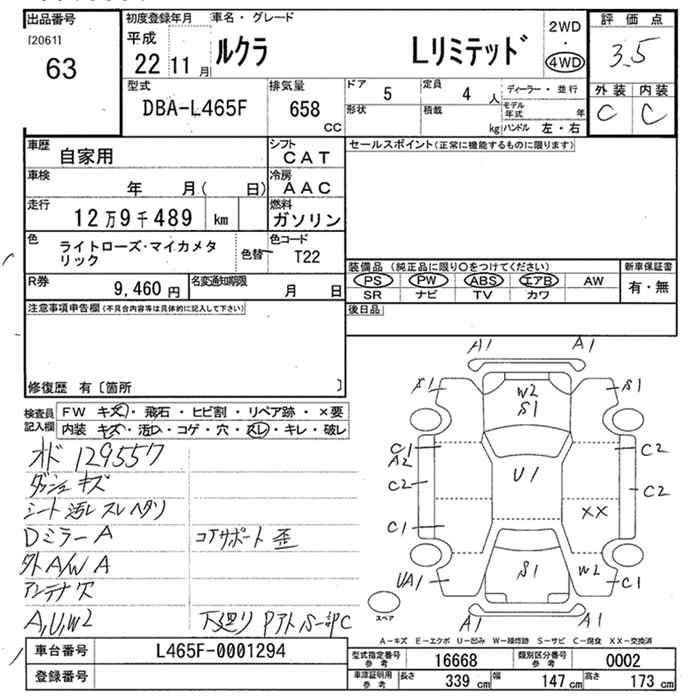 出品番号
[2061]
63
初度登録年月
平成
22 11 月
車名・グレード
ルクラ Lリミテッド
2WD
・
4WD
評価点
3.5
外装 内装
C C
型式
DBA-L465F
排気量
658
CC
ドア
5
定員
4 人
形状
積載
kg
ディーラー・並行
モデル年式 年
ハンドル 左・右
車歴
自家用
シフト
CAT
車検
年 月( 日)
冷房
AAC
走行
12万9千489 km
燃料
ガソリン
色
ライトローズ・マイカメタリック
色替
色コード
T22
R券
9,460 円
名変通知期限
月 日
セールスポイント(正常に機能するものに限ります)
装備品 (純正品に限り○をつけてください)
PS PW ABS エアB AW
SR ナビ TV カワ
新車保証書
有・無
後日品
注意事項申告欄(不具合内容等は具体的に記入して下さい)
修復歴 有〔箇所 〕
検査員記入欄
FW キズ・飛石・ヒビ割・リペア跡・×要
内装 キズ・汚れ・コゲ・穴・スレ・キレ・破レ
オド 129557
ダッシュ キズ
シート汚レ スレ ヘタリ
Dミラー A
コアサポート 歪
外A/W A
アンテナ欠
A,U,W2
下廻り Pアト S一部C
A1 A1
S1 W2 S1 S1
C1 A2 C2
C2 U1 C2
C1 XX
UA1 S1 W2 C1
A1 A1
スペア
A−キズ E−エクボ U−凹み W−補修跡 S−サビ C−腐食 XX−交換済
車台番号
L465F-0001294
登録番号
型式指定番号 参考
16668
類別区分番号 参考
0002
車庫証明用 参考
長さ 339 cm 幅 147 cm 高さ 173 cm